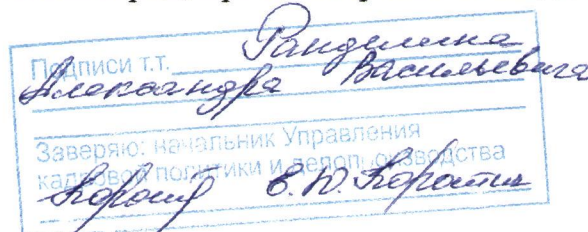 Подписи т.т. Рандилина
Александра Васильевича
Заверяю: начальник Управления
кадровой политики и делопроизводства
Е. Ю. Коротич